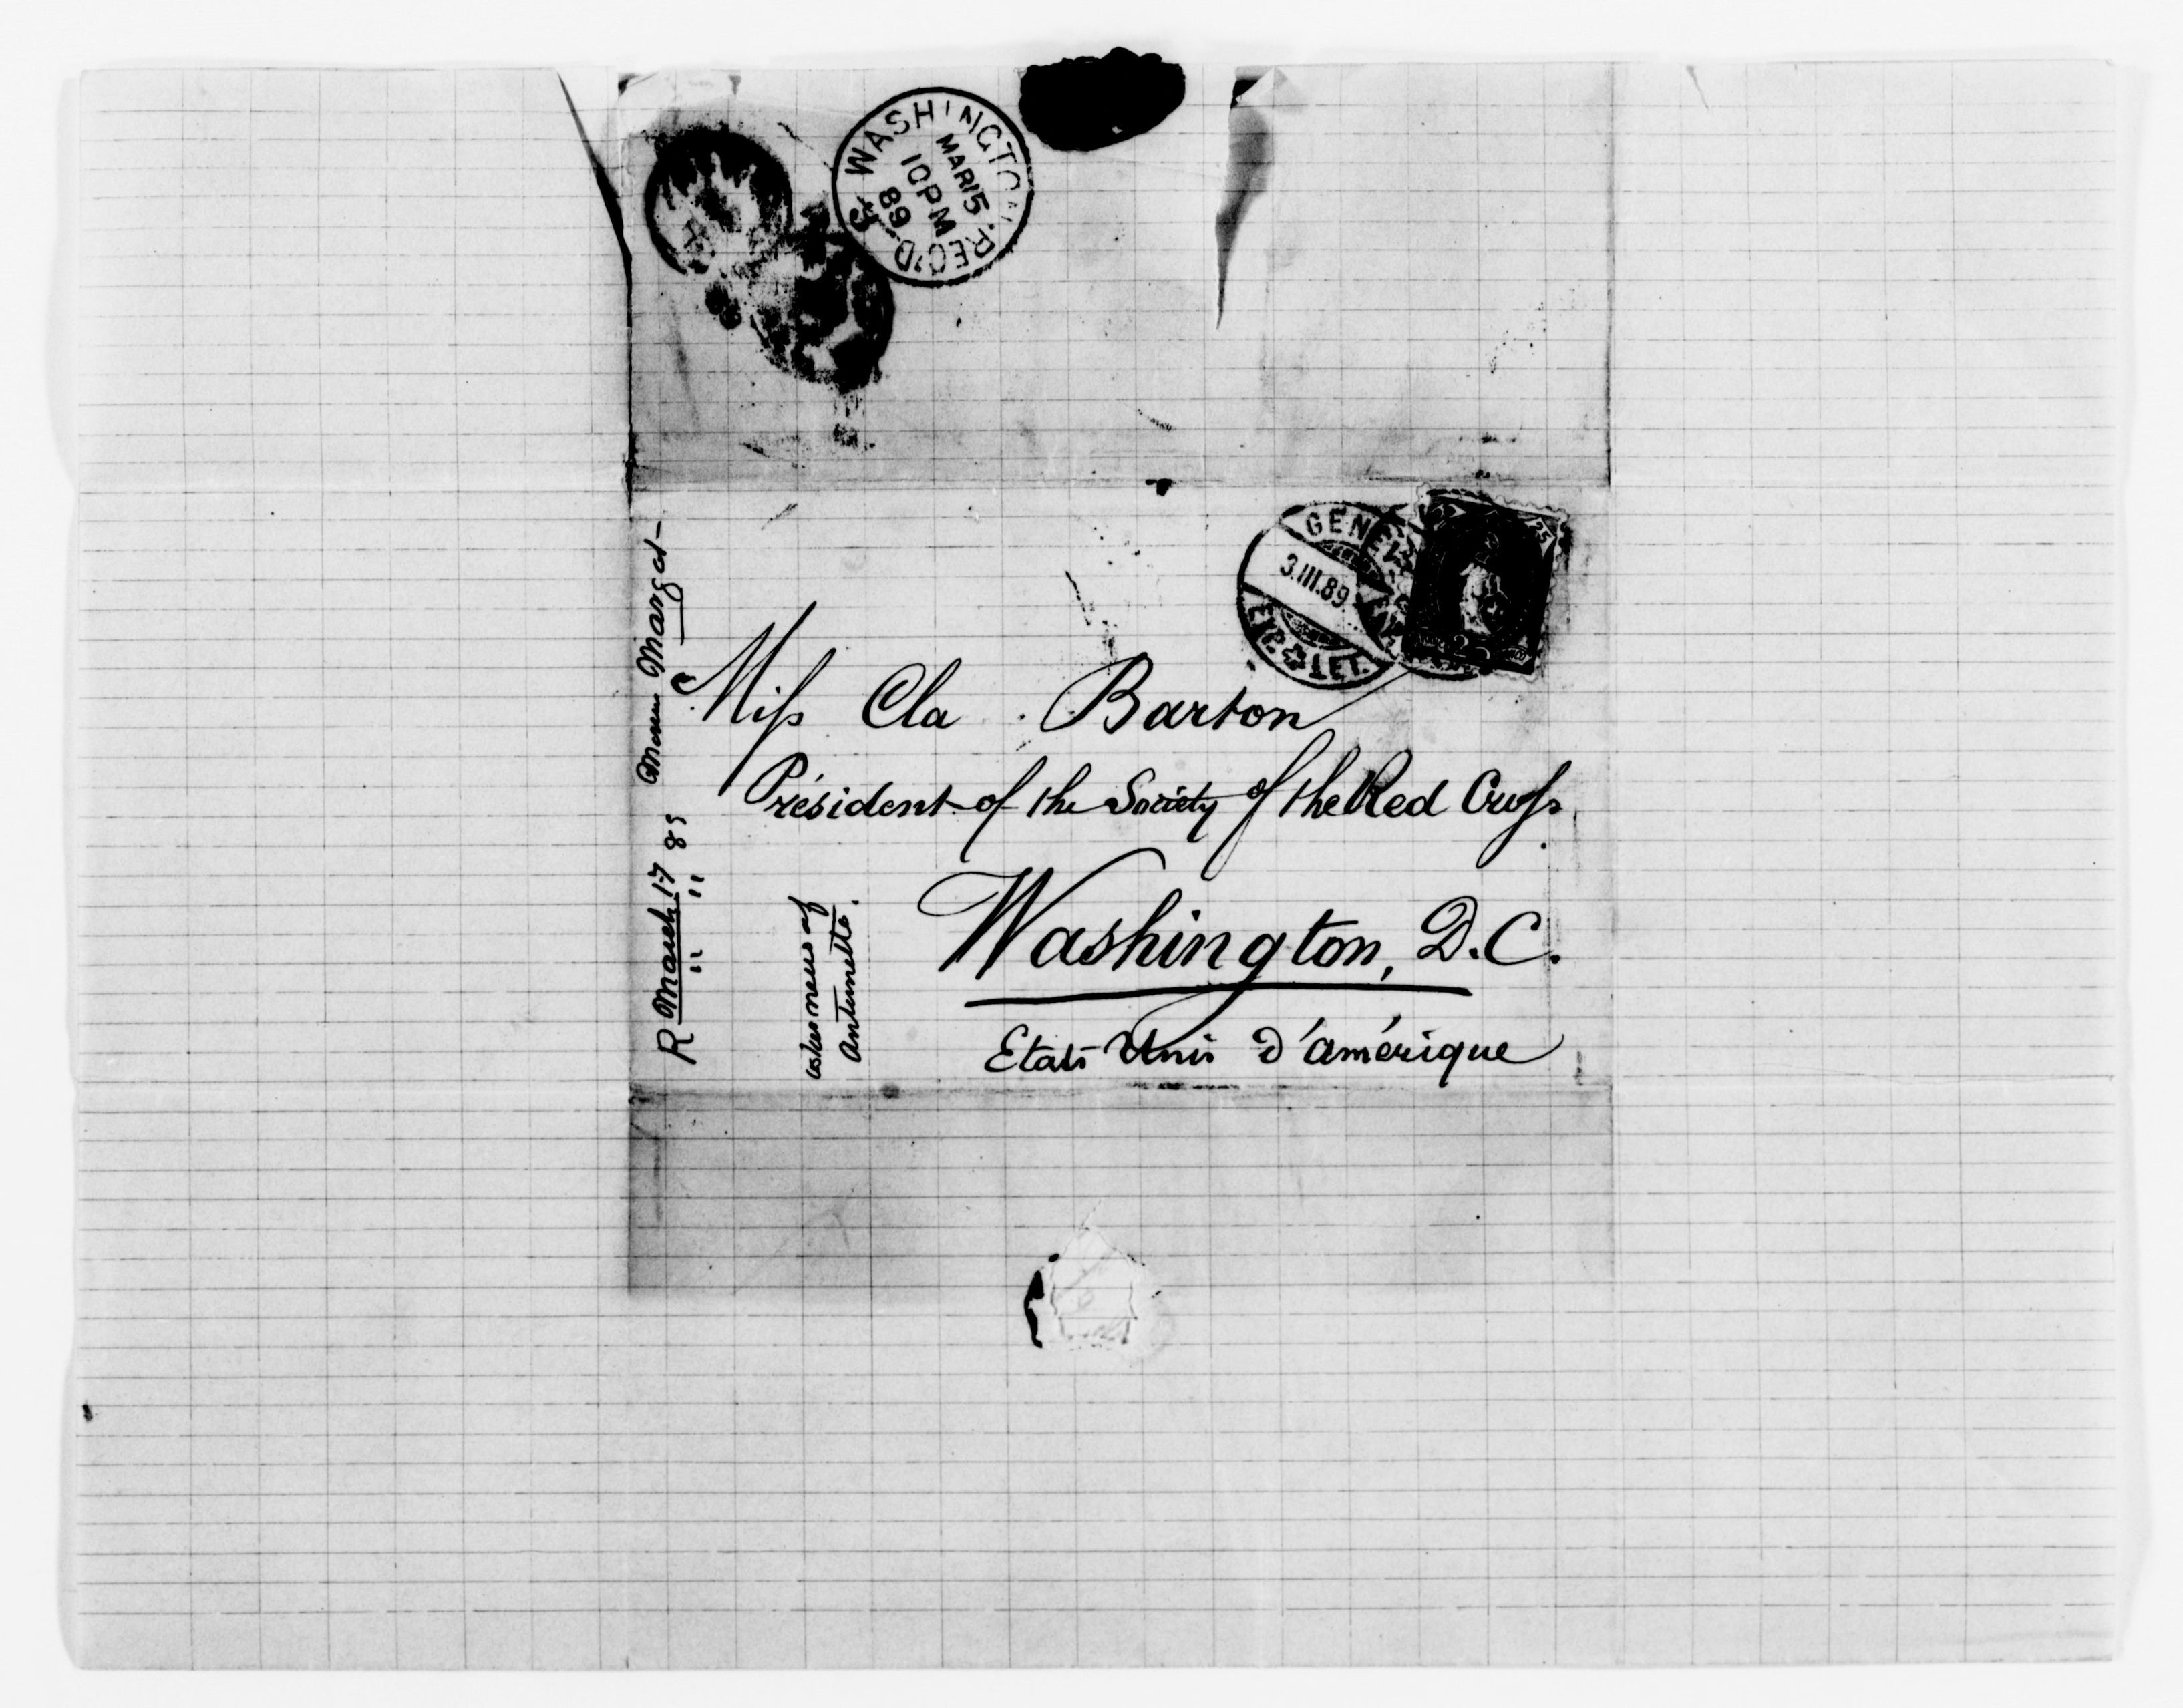 WASHINGTON REC'D
MAR 15
10 PM
89
3
GENEV
3.III.89
EXP. LET.
25
Miss Cla . Barton
Président of the Society of the Red Cross.
Washington, D.C.
Etats Unis d'amérique
R March 17 89 Margot
asks news of
Antoinette.